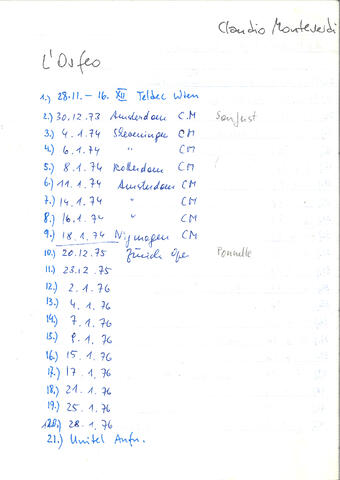 Claudio Monteverdi
L'Orfeo
1.) 28.11. – 16. XII Teldec Wien
2.) 30.12.73 Amsterdam C.M Sanjust
3.) 4.1.74 Scheveningen CM
4.) 6.1.74 " CM
5.) 8.1.74 Rotterdam CM
6.) 11.1.74 Amsterdam CM
7.) 14.1.74 " CM
8.) 16.1.74 " CM
9.) 18.1.74 Nijmegen CM
10.) 20.12.75 Zürich Oper Ponnelle
11.) 23.12.75
12.) 2.1.76
13.) 4.1.76
14.) 7.1.76
15.) 9.1.76
16.) 15.1.76
17.) 17.1.76
18.) 21.1.76
19.) 25.1.76
20.) 28.1.76
21.) Unitel Aufn.